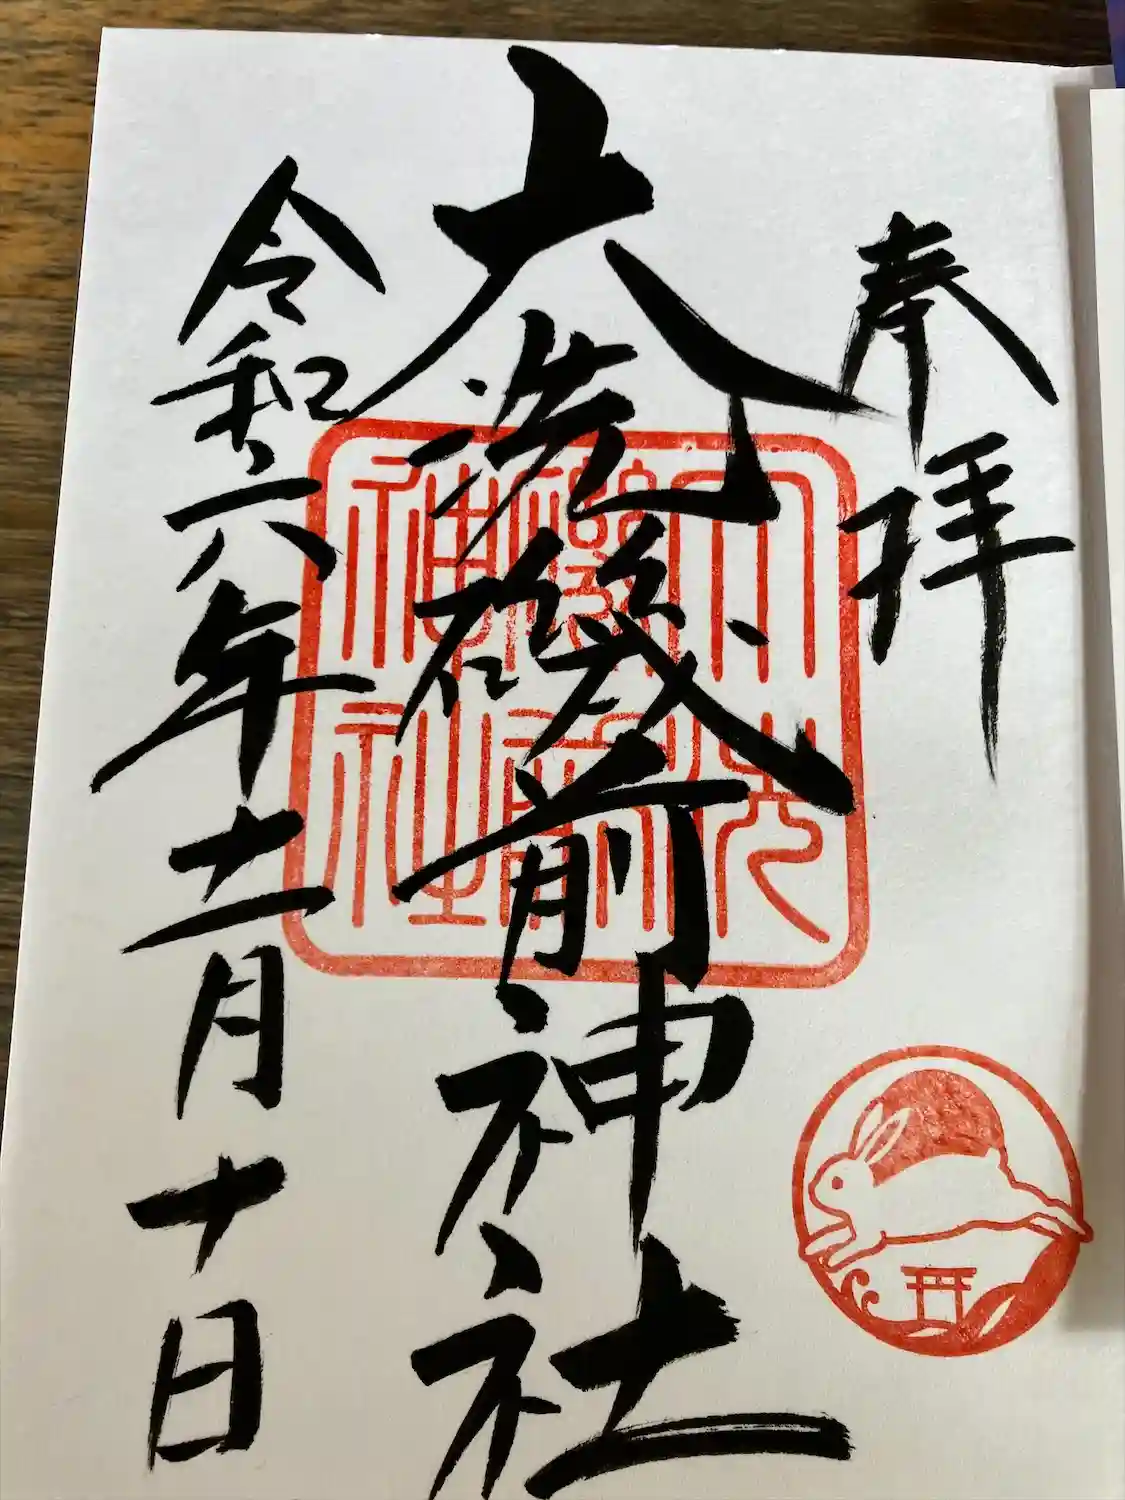 奉拝
大洗磯前神社
令和六年十一月十日
大洗
磯前
神社